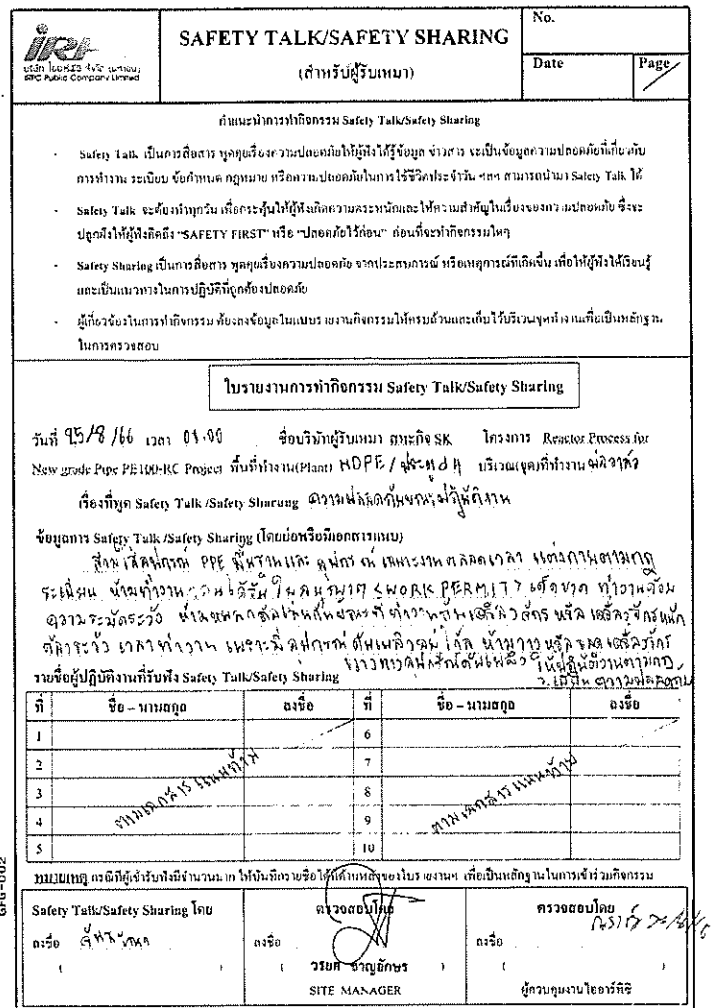 IRPC
บริษัท ไออาร์พีซี จำกัด (มหาชน)
IRPC Public Company Limited
SAFETY TALK/SAFETY SHARING
(สำหรับผู้รับเหมา)
No.
Date
Page
คำแนะนำการทำกิจกรรม Safety Talk/Safety Sharing
- Safety Talk เป็นการสื่อสาร พูดคุยเรื่องความปลอดภัยให้ผู้ฟังได้รู้ข้อมูล ข่าวสาร จะเป็นข้อมูลความปลอดภัยที่เกี่ยวกับ
การทำงาน ระเบียบ ข้อกำหนด กฎหมาย หรือความปลอดภัยในการใช้ชีวิตประจำวัน ฯลฯ สามารถนำมา Safety Talk ได้
- Safety Talk จะต้องทำทุกวัน เพื่อกระตุ้นให้ผู้ฟังเกิดความตระหนักและให้ความสำคัญในเรื่องของความปลอดภัย ซึ่งจะ
ปลูกฝังให้ผู้ฟังคิดถึง "SAFETY FIRST" หรือ "ปลอดภัยไว้ก่อน" ก่อนที่จะทำกิจกรรมใดๆ
- Safety Sharing เป็นการสื่อสาร พูดคุยเรื่องความปลอดภัย จากประสบการณ์ หรือเหตุการณ์ที่เกิดขึ้น เพื่อให้ผู้ฟังได้เรียนรู้
และเป็นแนวทางในการปฏิบัติที่ถูกต้องปลอดภัย
- ผู้เกี่ยวข้องในการทำกิจกรรม ต้องลงข้อมูลในแบบรายงานกิจกรรมให้ครบถ้วนและเก็บไว้บริเวณจุดทำงานเพื่อเป็นหลักฐาน
ในการตรวจสอบ
ใบรายงานการทำกิจกรรม Safety Talk/Safety Sharing
วันที่ 25/8/66 เวลา 08.00 ชื่อบริษัทผู้รับเหมา สหะกิจ SK โครงการ Reactor Process for
New grade Pipe PE100-RC Project พื้นที่ทำงาน(Plant) HDPE / ประตู 4 บริเวณ(จุด)ที่ทำงาน
เรื่องที่พูด Safety Talk /Safety Sharing ความปลอดภัยขณะปฏิบัติงาน
ข้อมูลการ Safety Talk /Safety Sharing (โดยย่อหรือมีเอกสารแนบ)
สวมใส่อุปกรณ์ PPE พื้นฐานและ อุปกรณ์ เฉพาะงานตลอดเวลา แต่งกายตามกฎ
ระเบียบ ห้ามทำงานก่อนได้รับใบอนุญาต <WORK PERMIT> เด็ดขาด ทำงานด้วย
ความระมัดระวัง ห้ามหยอกล้อเล่นกันขณะที่ทำงานกับเครื่องจักร หรือ เครื่องจักรหนัก
เวลาทำงาน เพราะมีอุปกรณ์ดับเพลิงอยู่ใกล้ ห้ามวางหรือจอดเครื่องจักร
ขวางทางอุปกรณ์ดับเพลิง ให้ปฏิบัติงานตามกฎ
ความปลอดภัย
รายชื่อผู้ปฏิบัติงานที่รับฟัง Safety Talk/Safety Sharing
ที่ ชื่อ – นามสกุล ลงชื่อ ที่ ชื่อ – นามสกุล ลงชื่อ
1 6
2 7
3 ตามเอกสารแนบท้าย 8 ตามเอกสารแนบท้าย
4 9
5 10
หมายเหตุ กรณีที่ผู้เข้ารับฟังมีจำนวนมาก ให้บันทึกรายชื่อได้ที่ด้านหลังของใบรายงานฯ เพื่อเป็นหลักฐานในการเข้าร่วมกิจกรรม
Safety Talk/Safety Sharing โดย ตรวจสอบโดย ตรวจสอบโดย
ลงชื่อ ลงชื่อ ลงชื่อ
( ) ( วรยศ ชาญอักษร ) ( )
SITE MANAGER ผู้ควบคุมงานไออาร์พีซี
GFG-002